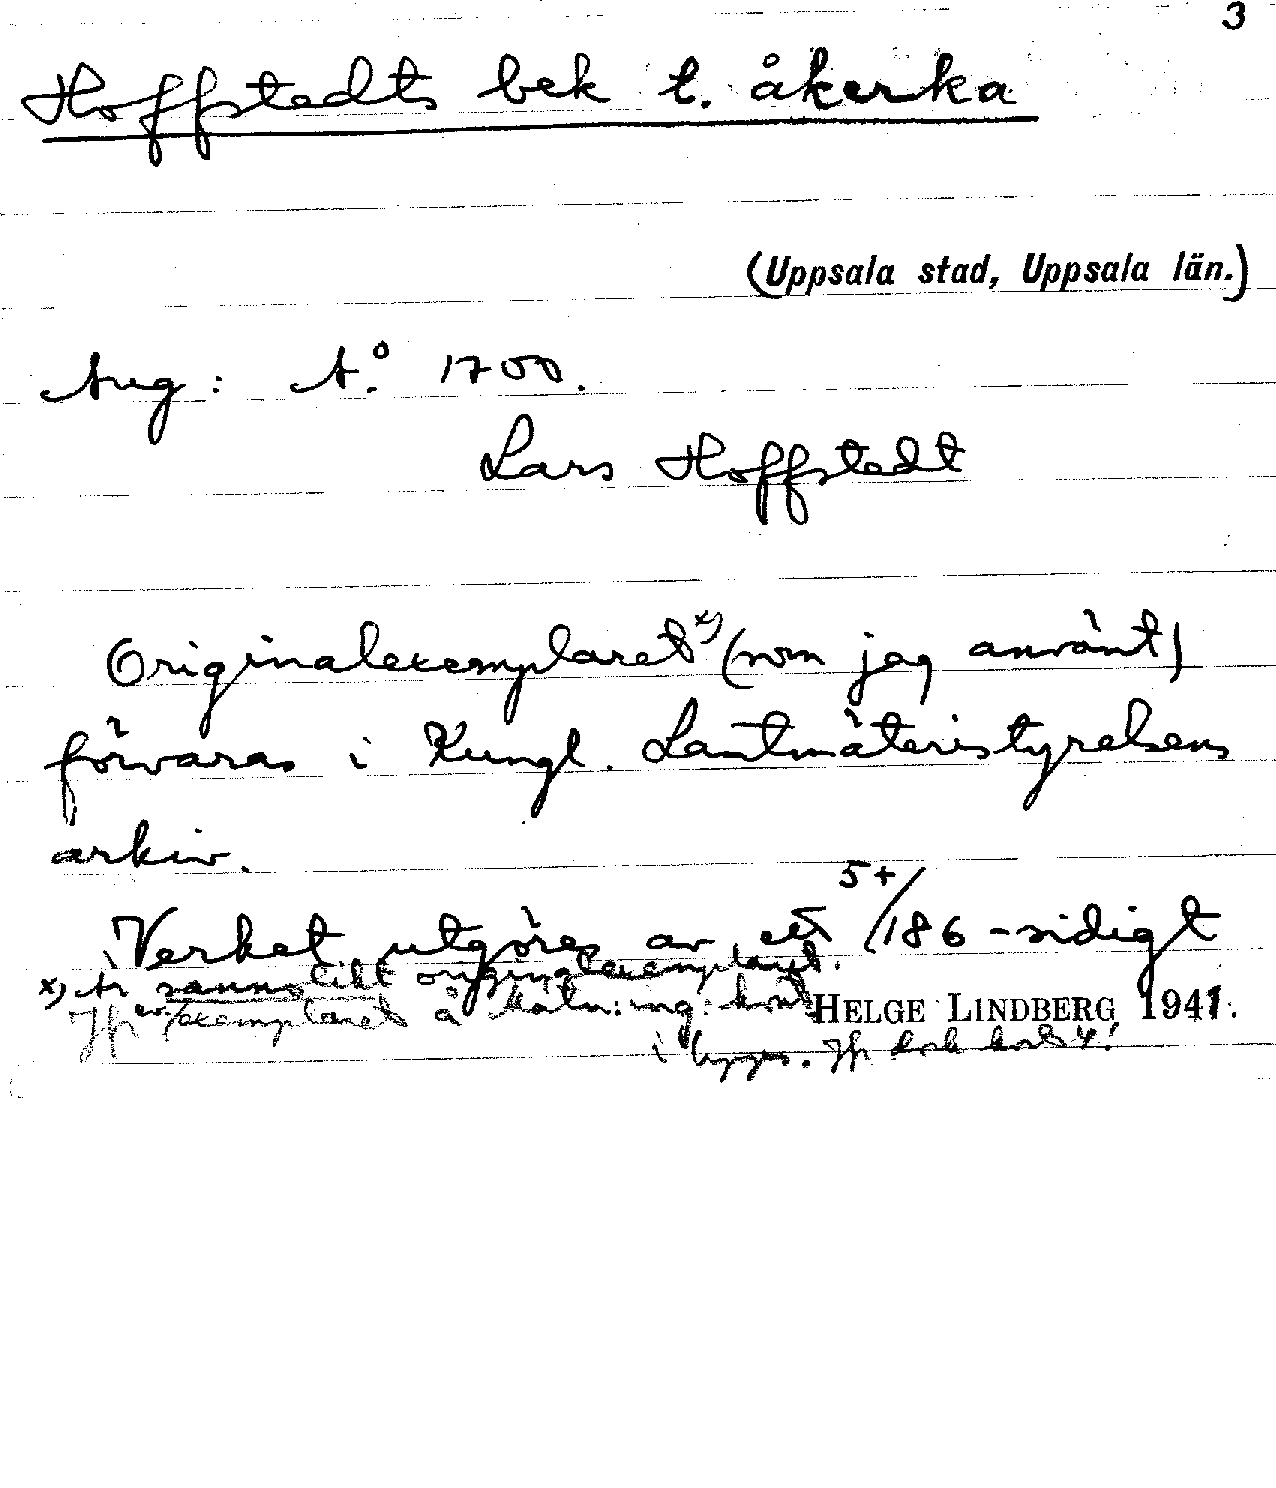 3
Hoffstedts bek t. åkerka
(Uppsala stad, Uppsala län.)
Aug: A:o 1700.
Lars Hoffstedt
Originalexemplaret x) (som jag använt)
förvaras i Kungl. Lantmäteristyrelsens
arkiv.
Verket utgöres av ett 5+/186-sidigt
x) Är sannolikt originalexemplaret.
Jfr exemplaret å
HELGE LINDBERG 1941.
i Uppsa. Jfr dock kort 4!